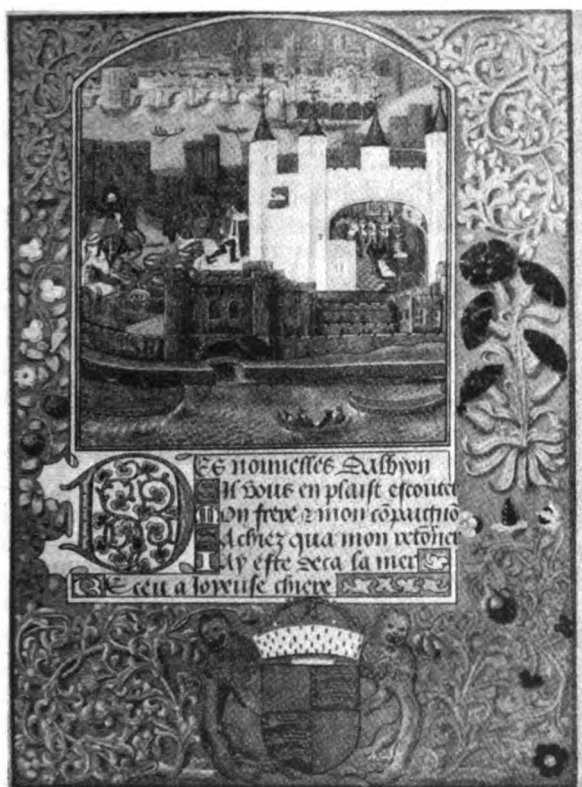 DES nouuelles Dalbyon
Sil vous en plaist escouter
Mon frere & mon cōpaignō
Sachiez qua mon retōner
Jay este deca la mer
Receu a Joyeuse chiere